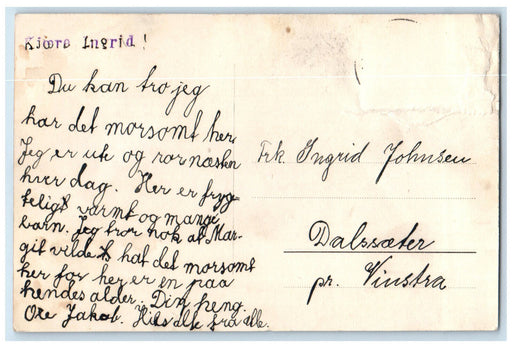 Kjære Ingrid!
Du kan tro jeg
har det morsomt her.
Jeg er ute og ror næsten
hver dag. Her er fryg
telig varmt og mange
barn. Jeg tror nok at Mar-
git vilde hat det morsomt
her for her er en paa
hendes alder. Din heng.
Jakob. Hils alle fra alle.
Frk. Ingrid Johnsen
Dalssæter
pr. Vinstra